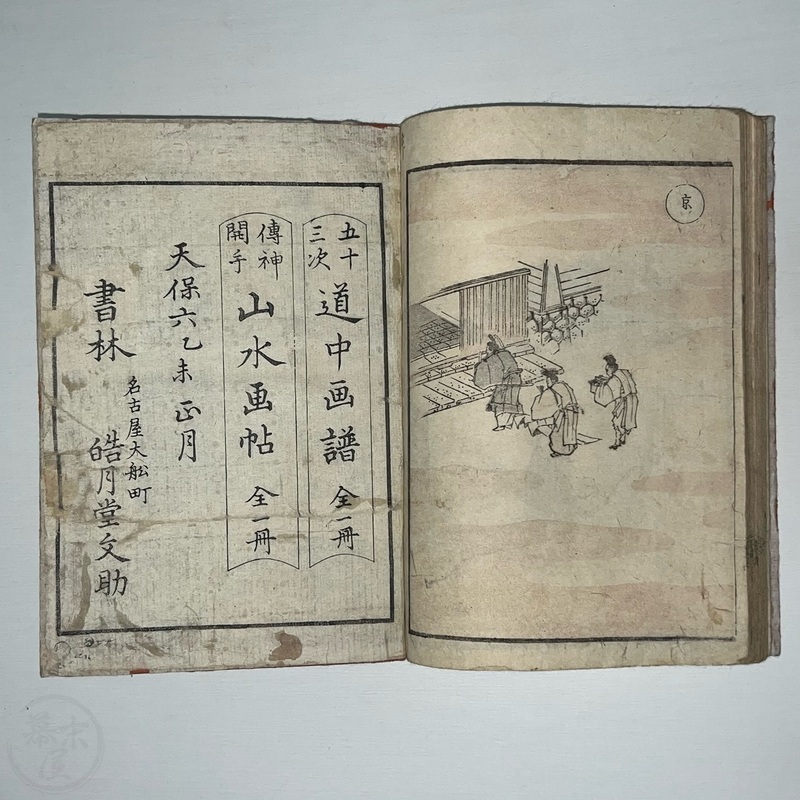 京
五十三次
道中画譜 全一冊
傳神開手
山水画帖 全一冊
天保六乙未 正月
名古屋大舩町
書林 皓月堂文助
幕末屋